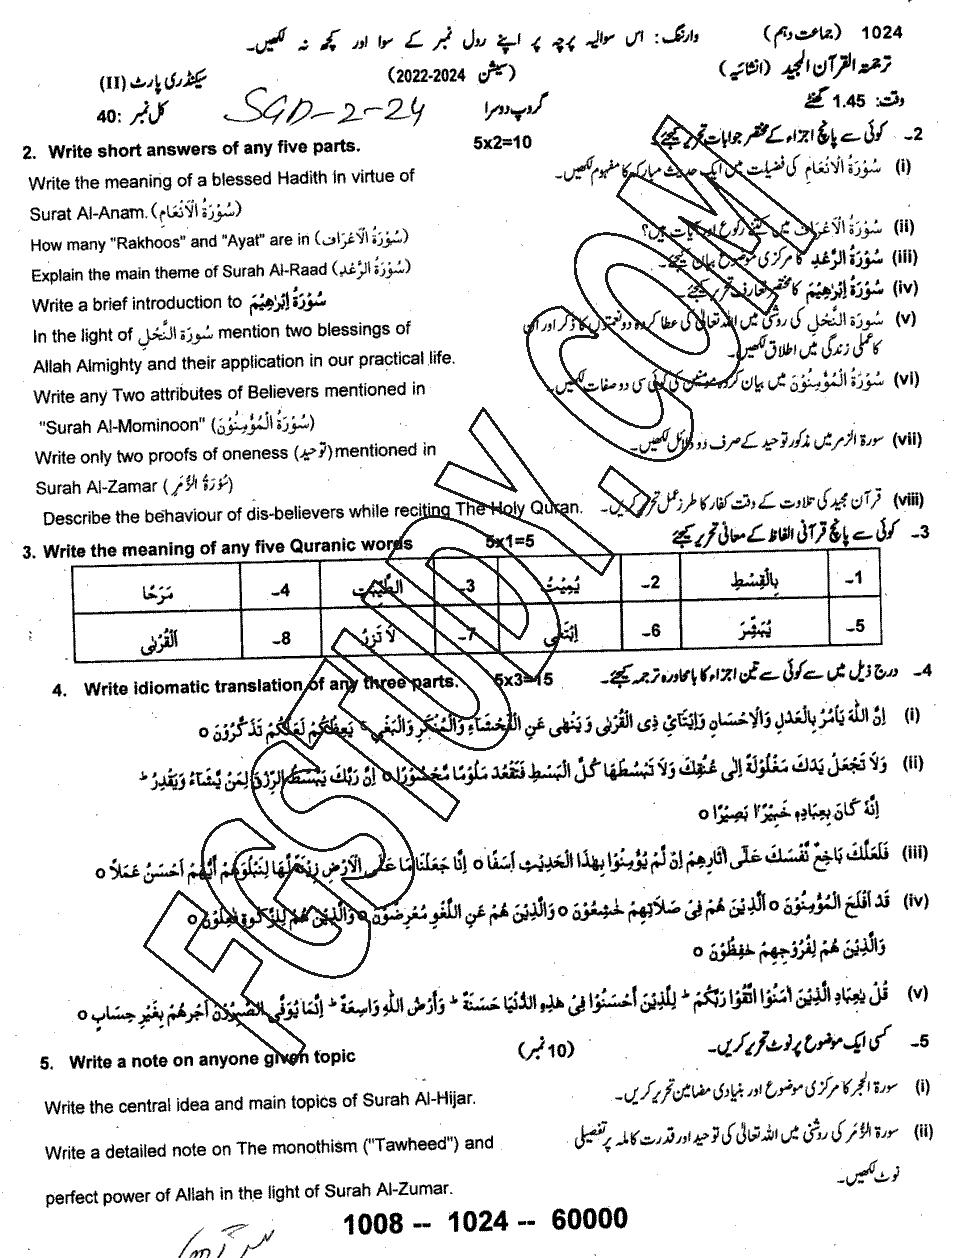 1024 (جماعت دہم) وارننگ: اس سوالیہ پرچہ پر اپنے رول نمبر کے سوا اور کچھ نہ لکھیں۔
ترجمۃ القرآن المجید (انشائیہ) (سیشن 2024-2022) سیکنڈری پارٹ (II)
وقت: 1.45 گھنٹے گروپ دوسرا SGD-2-24 کل نمبر: 40
2۔ کوئی سے پانچ اجزاء کے مختصر جوابات تحریر کیجئے۔
2. Write short answers of any five parts. 5x2=10
(i) سُوْرَةُ الْاَنْعَام کی فضیلت میں ایک حدیث مبارکہ کا مفہوم لکھیں۔
Write the meaning of a blessed Hadith in virtue of
Surat Al-Anam.(سُوْرَةُ الْاَنْعَامِ)
(ii) سُوْرَةُ الْاَعْرَاف میں کتنے رکوع اور آیات ہیں؟
How many "Rakhoos" and "Ayat" are in (سُوْرَةُ الْاَعْرَاف)
(iii) سُوْرَةُ الرَّعْدِ کا مرکزی موضوع بیان کیجئے۔
Explain the main theme of Surah Al-Raad (سُوْرَةُ الرَّعْدِ)
(iv) سُوْرَةُ اِبْرٰهِيْمَ کا مختصر تعارف تحریر کیجئے۔
Write a brief introduction to سُوْرَةُ اِبْرٰهِيْمَ
(v) سُورَة النَّحْلِ کی روشنی میں اللہ تعالیٰ کی عطا کردہ دو نعمتوں کا ذکر اور ان
کا عملی زندگی میں اطلاق لکھیں۔
In the light of سُورَة النَّحْلِ mention two blessings of
Allah Almighty and their application in our practical life.
(vi) سُوْرَةُ الْمُؤْمِنُوْنَ میں بیان کردہ مومنین کی کوئی سی دو صفات لکھیں۔
Write any Two attributes of Believers mentioned in
"Surah Al-Mominoon" (سُوْرَةُ الْمُؤْمِنُوْنَ)
(vii) سورۃ الزمر میں مذکور توحید کے صرف دو دلائل لکھیں۔
Write only two proofs of oneness (توحید) mentioned in
Surah Al-Zamar (سُوْرَةُ الزُّمَر)
(viii) قرآن مجید کی تلاوت کے وقت کفار کا طرز عمل تحریر کریں۔
Describe the behaviour of dis-believers while reciting The Holy Quran.
3۔ کوئی سے پانچ قرآنی الفاظ کے معانی تحریر کیجئے
3. Write the meaning of any five Quranic words 5x1=5
1۔ بِالْقِسْطِ 2۔ يُمِيْتُ 3۔ الطَّيِّبٰتِ 4۔ مَرَحًا
5۔ يُبَشِّرَ 6۔ اِيْتَآئِ 7۔ لَا تَزِرُ 8۔ الْقُرْبٰى
4۔ درج ذیل میں سے کوئی سے تین اجزاء کا بامحاورہ ترجمہ کیجئے۔
4. Write idiomatic translation of any three parts. 5x3=15
(i) اِنَّ اللّٰهَ يَاْمُرُ بِالْعَدْلِ وَالْاِحْسَانِ وَاِيْتَآئِ ذِى الْقُرْبٰى وَيَنْهٰى عَنِ الْفَحْشَآءِ وَالْمُنْكَرِ وَالْبَغْىِ ۚ يَعِظُكُمْ لَعَلَّكُمْ تَذَكَّرُوْنَ ○
(ii) وَلَا تَجْعَلْ يَدَكَ مَغْلُوْلَةً اِلٰى عُنُقِكَ وَلَا تَبْسُطْهَا كُلَّ الْبَسْطِ فَتَقْعُدَ مَلُوْمًا مَّحْسُوْرًا ○ اِنَّ رَبَّكَ يَبْسُطُ الرِّزْقَ لِمَنْ يَّشَآءُ وَيَقْدِرُ ؕ
اِنَّهٗ كَانَ بِعِبَادِهٖ خَبِيْرًا ۢ بَصِيْرًا ○
(iii) فَلَعَلَّكَ بَاخِعٌ نَّفْسَكَ عَلٰٓى اٰثَارِهِمْ اِنْ لَّمْ يُؤْمِنُوْا بِهٰذَا الْحَدِيْثِ اَسَفًا ○ اِنَّا جَعَلْنَا مَا عَلَى الْاَرْضِ زِيْنَةً لَّهَا لِنَبْلُوَهُمْ اَيُّهُمْ اَحْسَنُ عَمَلًا ○
(iv) قَدْ اَفْلَحَ الْمُؤْمِنُوْنَ ○ الَّذِيْنَ هُمْ فِىْ صَلَاتِهِمْ خٰشِعُوْنَ ○ وَالَّذِيْنَ هُمْ عَنِ اللَّغْوِ مُعْرِضُوْنَ ○ وَالَّذِيْنَ هُمْ لِلزَّكٰوةِ فٰعِلُوْنَ ○
وَالَّذِيْنَ هُمْ لِفُرُوْجِهِمْ حٰفِظُوْنَ ○
(v) قُلْ يٰعِبَادِ الَّذِيْنَ اٰمَنُوا اتَّقُوْا رَبَّكُمْ ؕ لِلَّذِيْنَ اَحْسَنُوْا فِىْ هٰذِهِ الدُّنْيَا حَسَنَةٌ ؕ وَاَرْضُ اللّٰهِ وَاسِعَةٌ ؕ اِنَّمَا يُوَفَّى الصّٰبِرُوْنَ اَجْرَهُمْ بِغَيْرِ حِسَابٍ ○
5۔ کسی ایک موضوع پر نوٹ تحریر کریں۔ (10 نمبر)
5. Write a note on anyone given topic
(i) سورۃ الحجر کا مرکزی موضوع اور بنیادی مضامین تحریر کریں۔
Write the central idea and main topics of Surah Al-Hijar.
(ii) سورۃ الزُّمَر کی روشنی میں اللہ تعالیٰ کی توحید اور قدرت کاملہ پر تفصیلی
نوٹ لکھیں۔
Write a detailed note on The monothism ("Tawheed") and
perfect power of Allah in the light of Surah Al-Zumar.
1008 -- 1024 -- 60000
FGSTUDY.COM